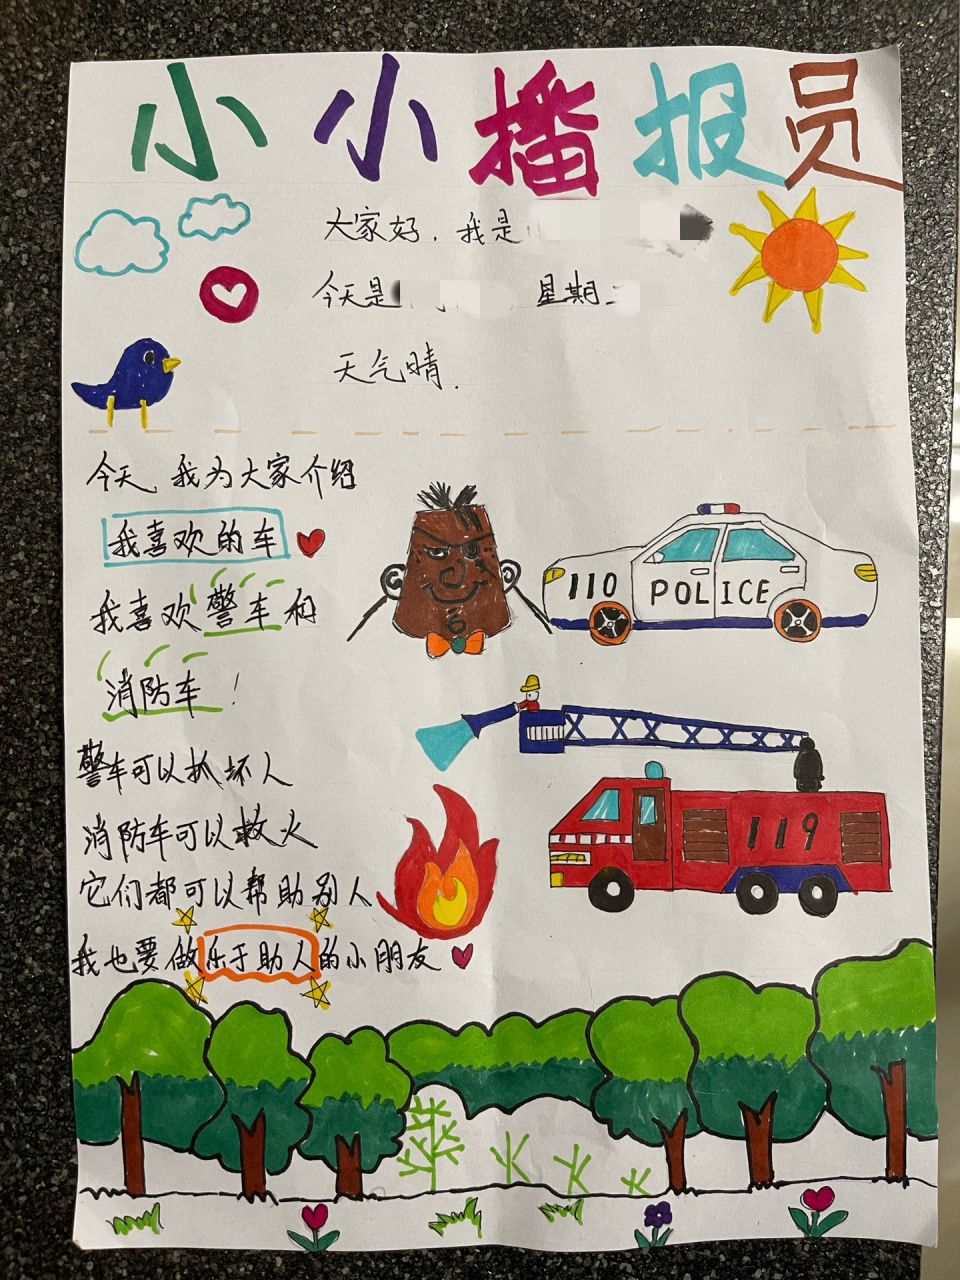 小小播报员
大家好，我是
今天是 星期
天气晴.
今天，我为大家介绍
我喜欢的车
我喜欢警车和
消防车！
110 POLICE
警车可以抓坏人
消防车可以救火
119
它们都可以帮助别人
我也要做乐于助人的小朋友